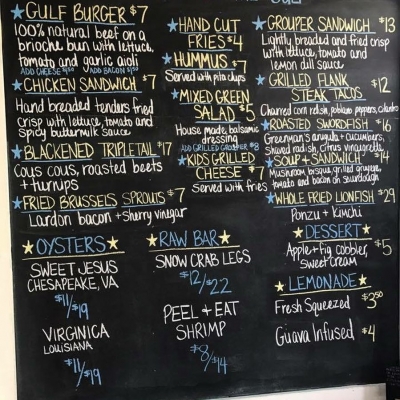 GULF BURGER $7
100% natural beef on a
brioche bun with lettuce,
tomato and garlic aioli
ADD CHEESE $1.50 ADD BACON $1.50
CHICKEN SANDWICH $7
Hand breaded tenders fried
crisp with lettuce, tomato and
spicy buttermilk sauce
BLACKENED TRIPLETAIL $17
Cous cous, roasted beets
+ turnips
FRIED BRUSSELS SPROUTS $7
Lardon bacon + Sherry vinegar
HAND CUT
FRIES $4
HUMMUS $7
Served with pita chips
MIXED GREEN
SALAD $5
House made, balsamic
dressing
ADD GRILLED GROUPER $8
KIDS GRILLED
CHEESE $7
Served with fries
GROUPER SANDWICH $13
Lightly breaded and fried crisp
with lettuce, tomato and
lemon dill sauce
GRILLED FLANK
STEAK TACOS $12
Charred corn relish, poblano peppers, cilantro
ROASTED SWORDFISH $16
Greenman's arugula + cucumbers,
shaved radish, citrus vinaigrette
SOUP + SANDWICH $14
Mushroom bisque, grilled gruyere,
tomato and bacon on sourdough
WHOLE FRIED LIONFISH $29
Ponzu + kimchi
OYSTERS
SWEET JESUS
CHESAPEAKE, VA
$11/$19
VIRGINICA
LOUISIANA
$11/$19
RAW BAR
SNOW CRAB LEGS
$12/$22
PEEL + EAT
SHRIMP
$8/$14
DESSERT
Apple + fig cobbler, $5
sweet cream
LEMONADE
Fresh Squeezed $3.50
Guava Infused $4